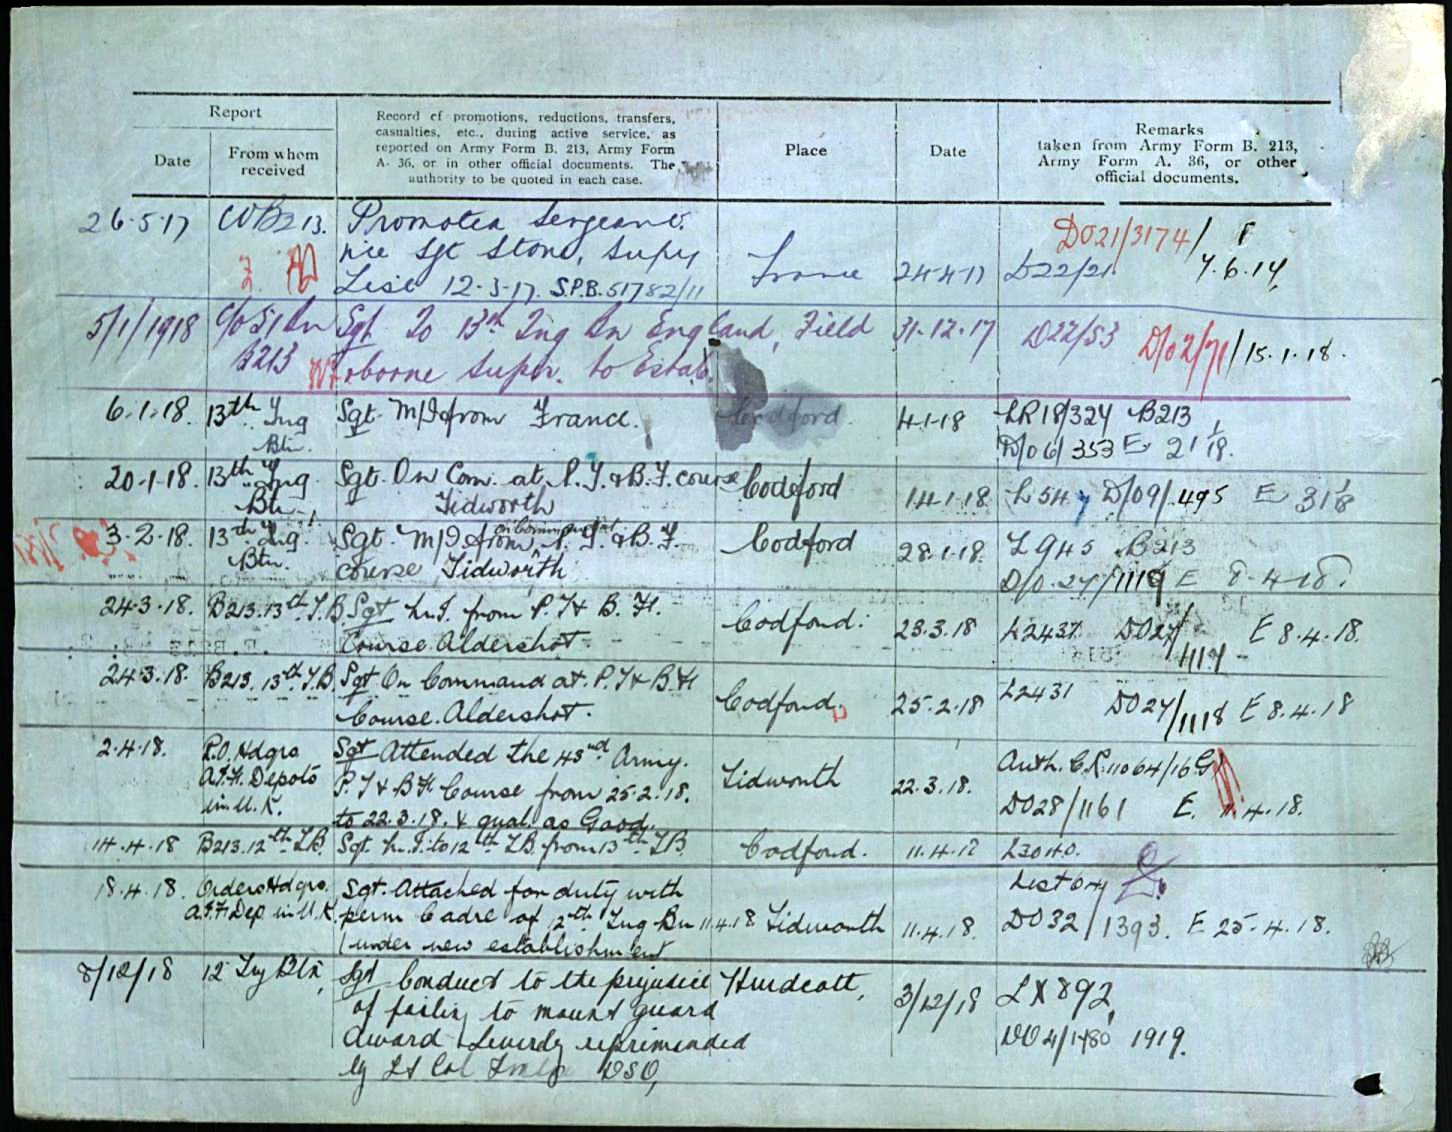 Report
Record of promotions, reductions, transfers,
casualties, etc., during active service, as
reported on Army Form B. 213, Army Form
A. 36, or in other official documents. The
authority to be quoted in each case.
Date
From whom
received
Place
Date
Remarks
taken from Army Form B. 213,
Army Form A. 36, or other
official documents.
26.5.17 B213. Promoted Sergeant.
vice Sgt Stone, Supy
List 12-3-17. S.P.B. 51782/11 France 24-4-17 D22/21
DO21/3174/
5/1/1918 51 Bn Sgt To 13th Tng Bn England, Field 31-12-17 D22/53 D/02/71/15.1.18.
B213 Supr. to Estab.
6.1.18. 13th Tng Btn. Sgt. M/I from France. Codford 4.1.18 LR18/324 B213
D/06/353 E 21/1/18.
20.1.18. 13th Tng Btn. Sgt. On Com. at P.T. & B.F. course Codford 14.1.18 L54 D/09/.495 E 31/1/18
Tidworth
3.2.18. 13th Tng Btn. Sgt. M/I from on Command at P.T. & B.F. Codford 28.1.18. L945 B213
course Tidworth D/O.27/1119 E 8.4.18.
24.3.18. B213. 13th T.B. Sgt M.I. from P.T & B.F. Codford. 23.3.18 L2437 DO27/1117 E 8.4.18.
Course. Aldershot.
24.3.18. B213. 13th T.B. Sgt On Command at P.T & B.F Codford. 25.2.18 L2431 DO27/1118 E 8.4.18
Course. Aldershot.
2.4.18. P.O. Hdqrs Sgt Attended the 43rd Army. Auth. C.R. 11064/16
A.I.F. Depots P.T & B.F Course from 25.2.18. Tidworth 22.3.18.
in U.K. to 22.3.18. & qual. as Good. DO28/1161 E. 11.4.18.
14.4.18 B213. 12th T.B. Sgt. M.I. to 12th T.B. from 13th T.B. Codford. 11.4.18 L3040.
18.4.18. Orders Hdqrs. Sgt. Attached for duty with List 04
A.I.F. Dep. in U.K. perm Cadre of 12th Tng Bn 11.4.18 Tidworth 11.4.18. DO32/1393. E 25.4.18.
(under new establishment
8/12/18 12 Trg Btn, Sgt Conduct to the prejudice Hurdcott, 3/12/18 LX892,
of failing to mount guard
Award Severely reprimanded DO4/1480 1919.
by Lt Col DSO,